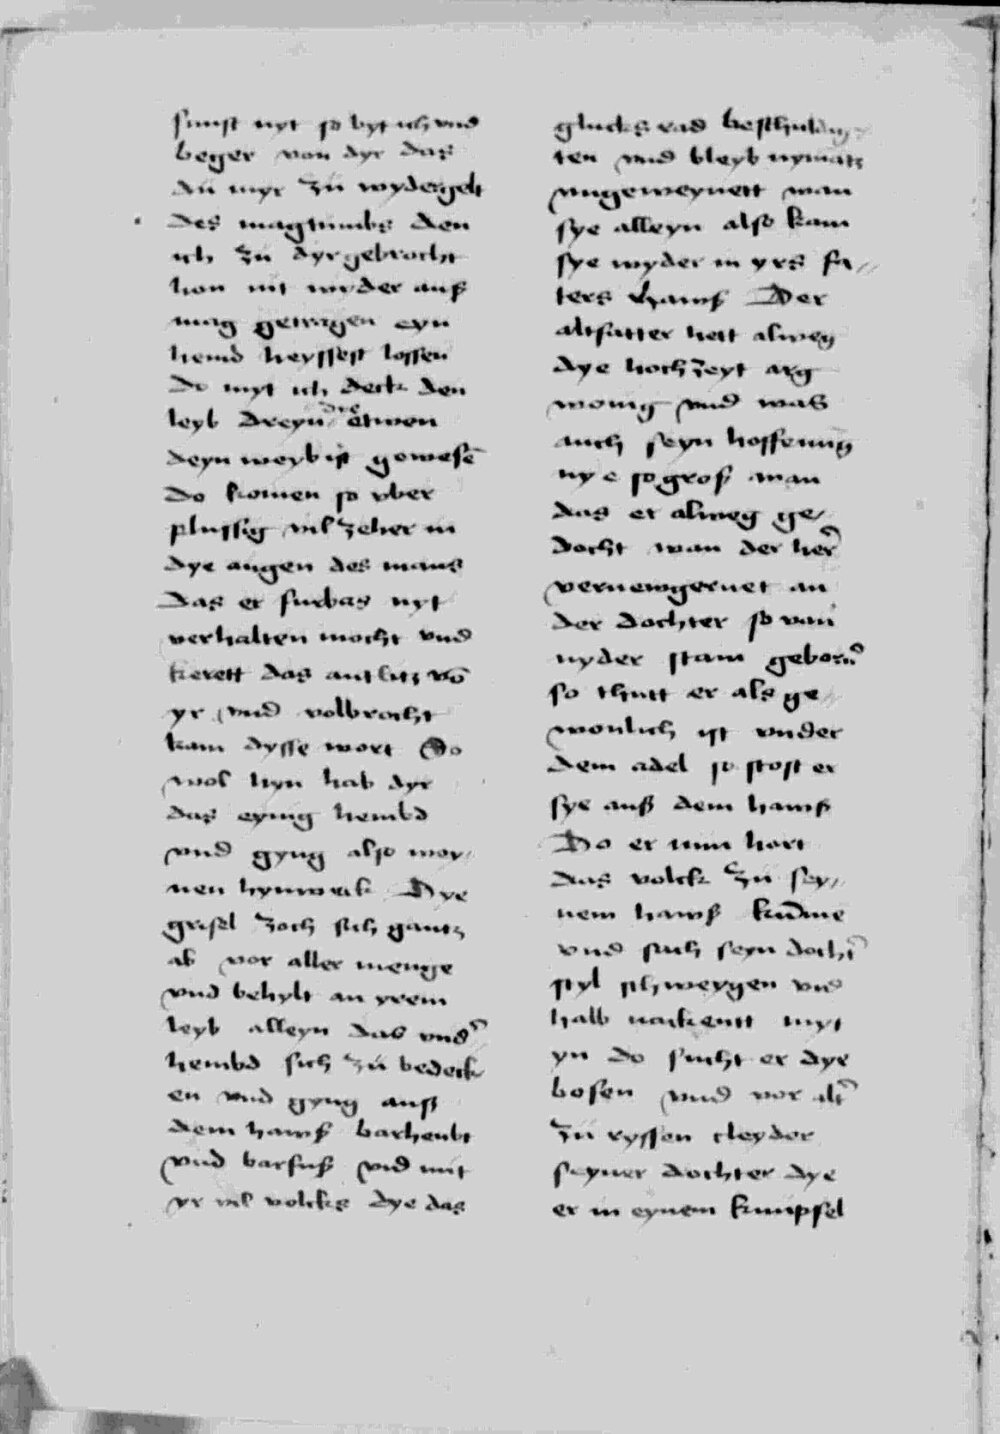 sunst nyt so byt ich vnd
beger von dyr das
du myr zu wydergelt
des magtumbs den
ich zu dyr gebrocht
hon nit wyder auß
mag getragen eyn
hemd heyssest lossen
do myt ich deck den
leyb dreyn die etwen
deyn weyb ist gewesē
do komen so vber
flussig vil zeher in
dye augen des mans
das er furbas nyt
verhalten mocht vnd
kerett das antlitz vō
yr vnd volbrocht
kam dysse wort So
wol hyn hab dyr
das eynig hembd
vnd gyng also wey/
nen hynweck Dye
grisel zoch sich gantz
ab vor aller menge
vnd behylt an yrem
leyb alleyn das vnd̛
hembd sich zu bedeck
en vnd gyng auß
dem hawß barheubt
vnd barfuß vnd mit
yr vil volcks dye das
glucks rad beschuldig/
ten vnd bleyb nymatz
vngeweynett wan
sye alleyn also kam
sye wyder in yrs fa//
ters hawß Der
altfatter hett alweg
dye hochzeyt arg
wonig vnd was
auch seyn hoffenung
nye so groß man
das er alweg ge/
docht wan der her̄
vernewgernet an
der dochter so van
nyder stam geborn̄
so thutt er als ge//
wonlich ist vnder
dem adel so stost er
sye auß dem hawß
Do er nun hort
das volck zu sey//
nem hawß kum̄e
vnd sach seyn docht̛
styl schweygen vnd
halb nackentt myt
yn do sucht er dye
bosen vnd vor alt̛
zu ryssen cleyder
seyner dochter dye
er in eynem knupfel